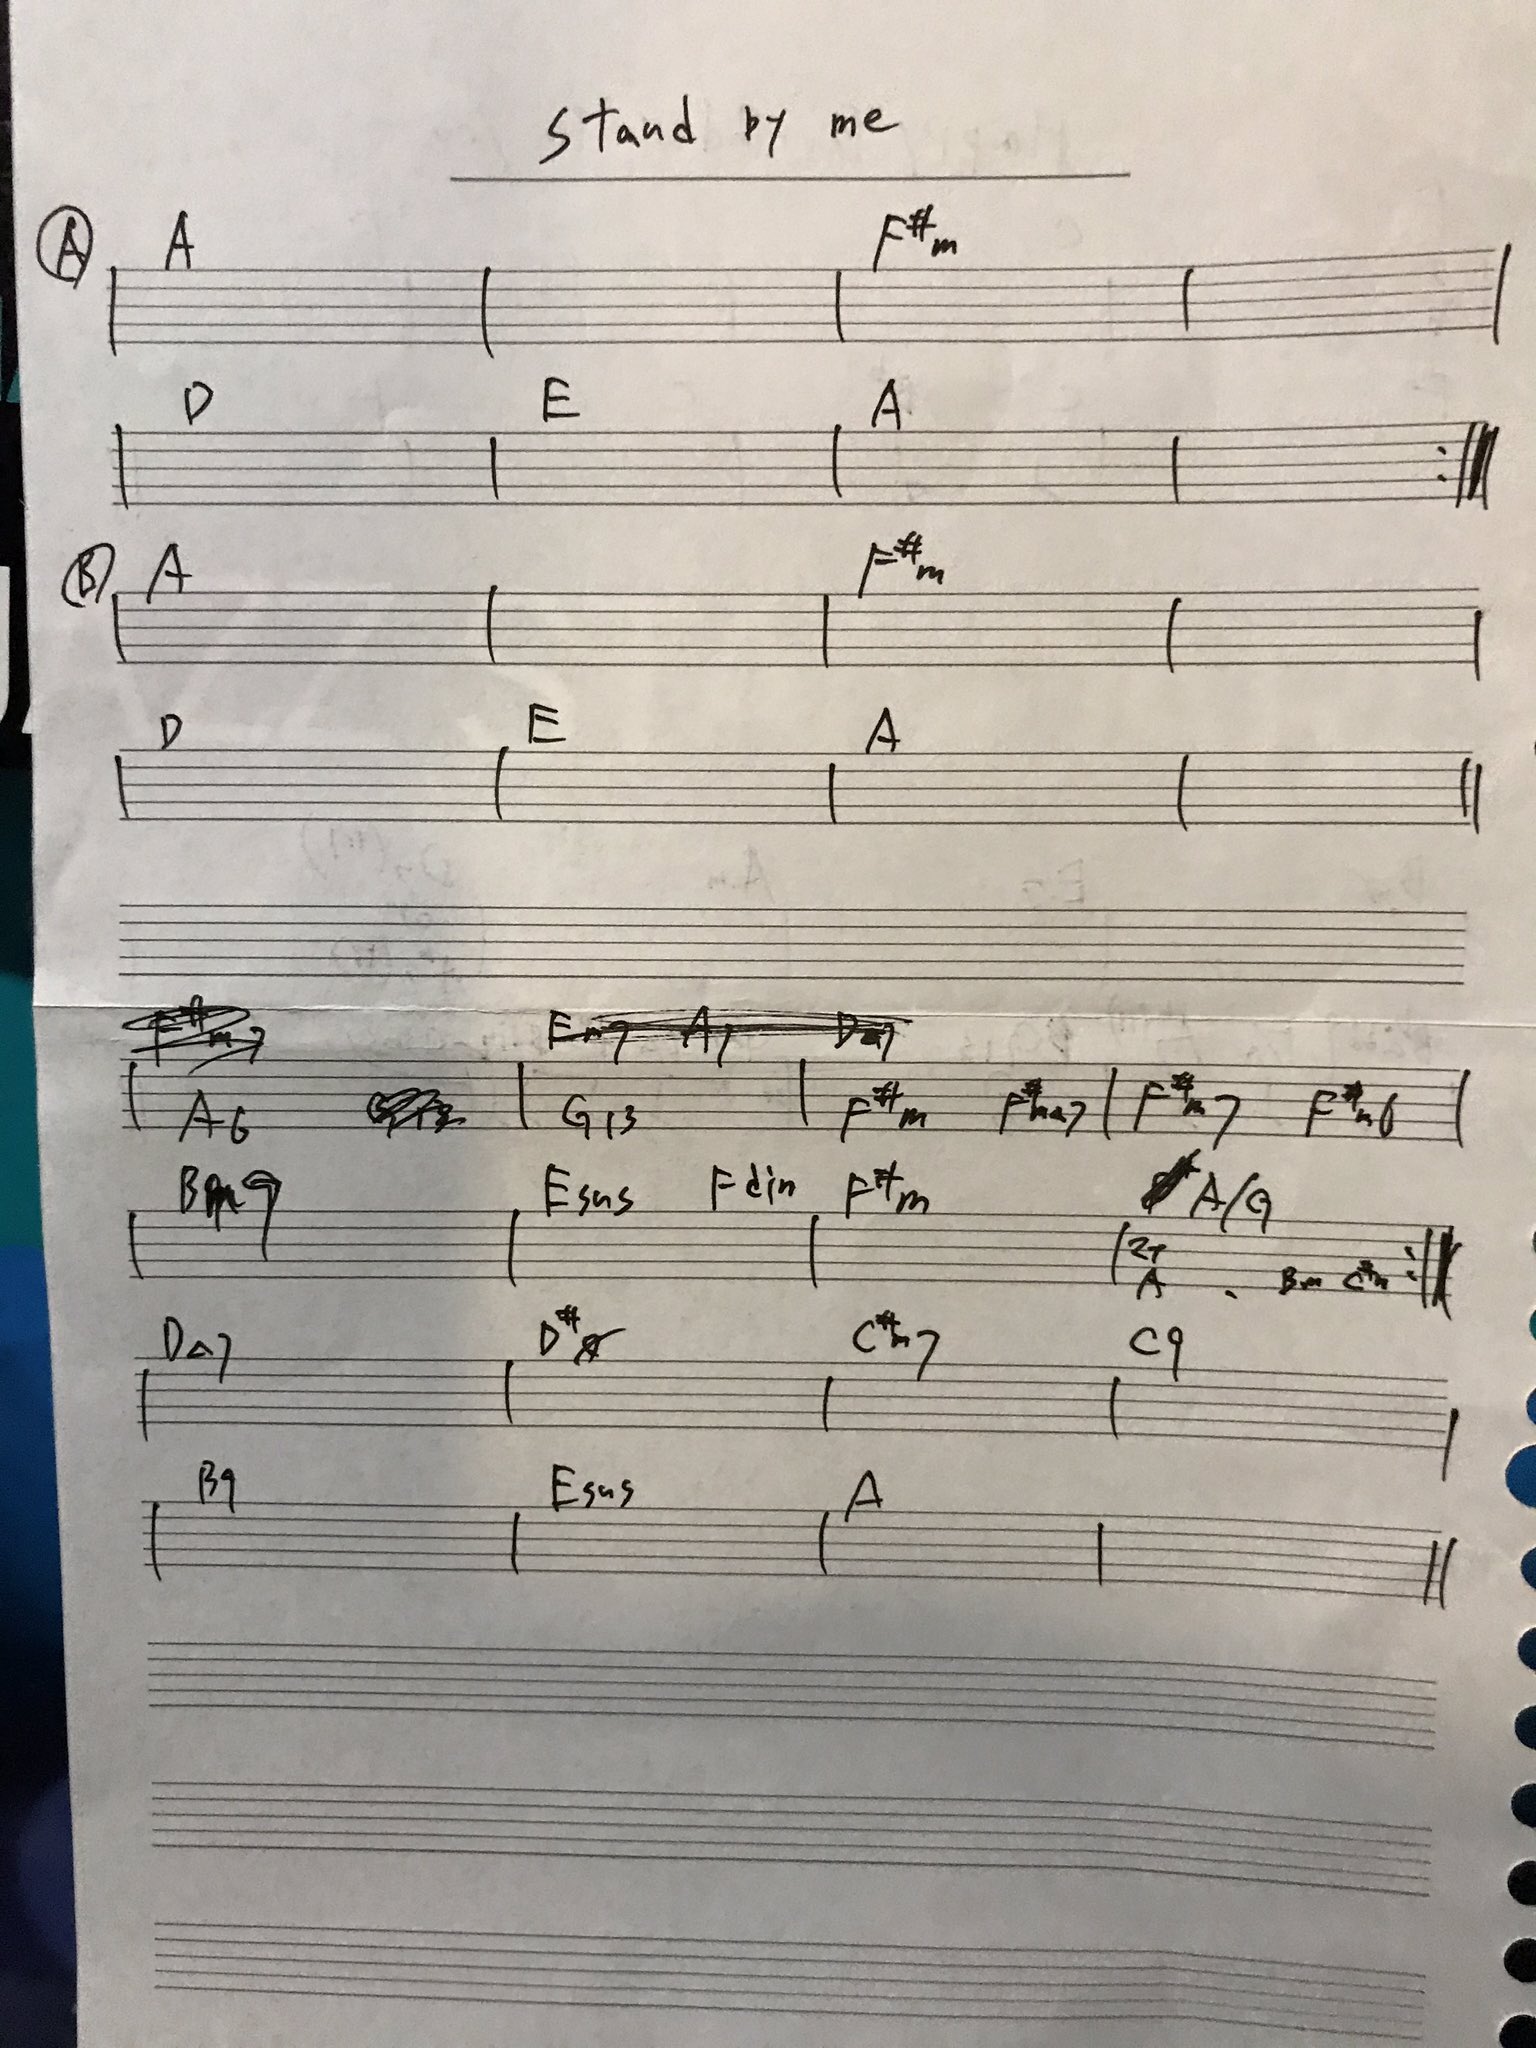 stand by me
Ⓐ A F#m
D E A
Ⓑ A F#m
D E A
F#m7 Em7 A7 D△7
A6 G13 F#m F#m△7 F#m7 F#m6
Bm9 Esus Fdim F#m A/G
2x
A Bm C#m
D△7 D# C#m7 C9
B9 Esus A